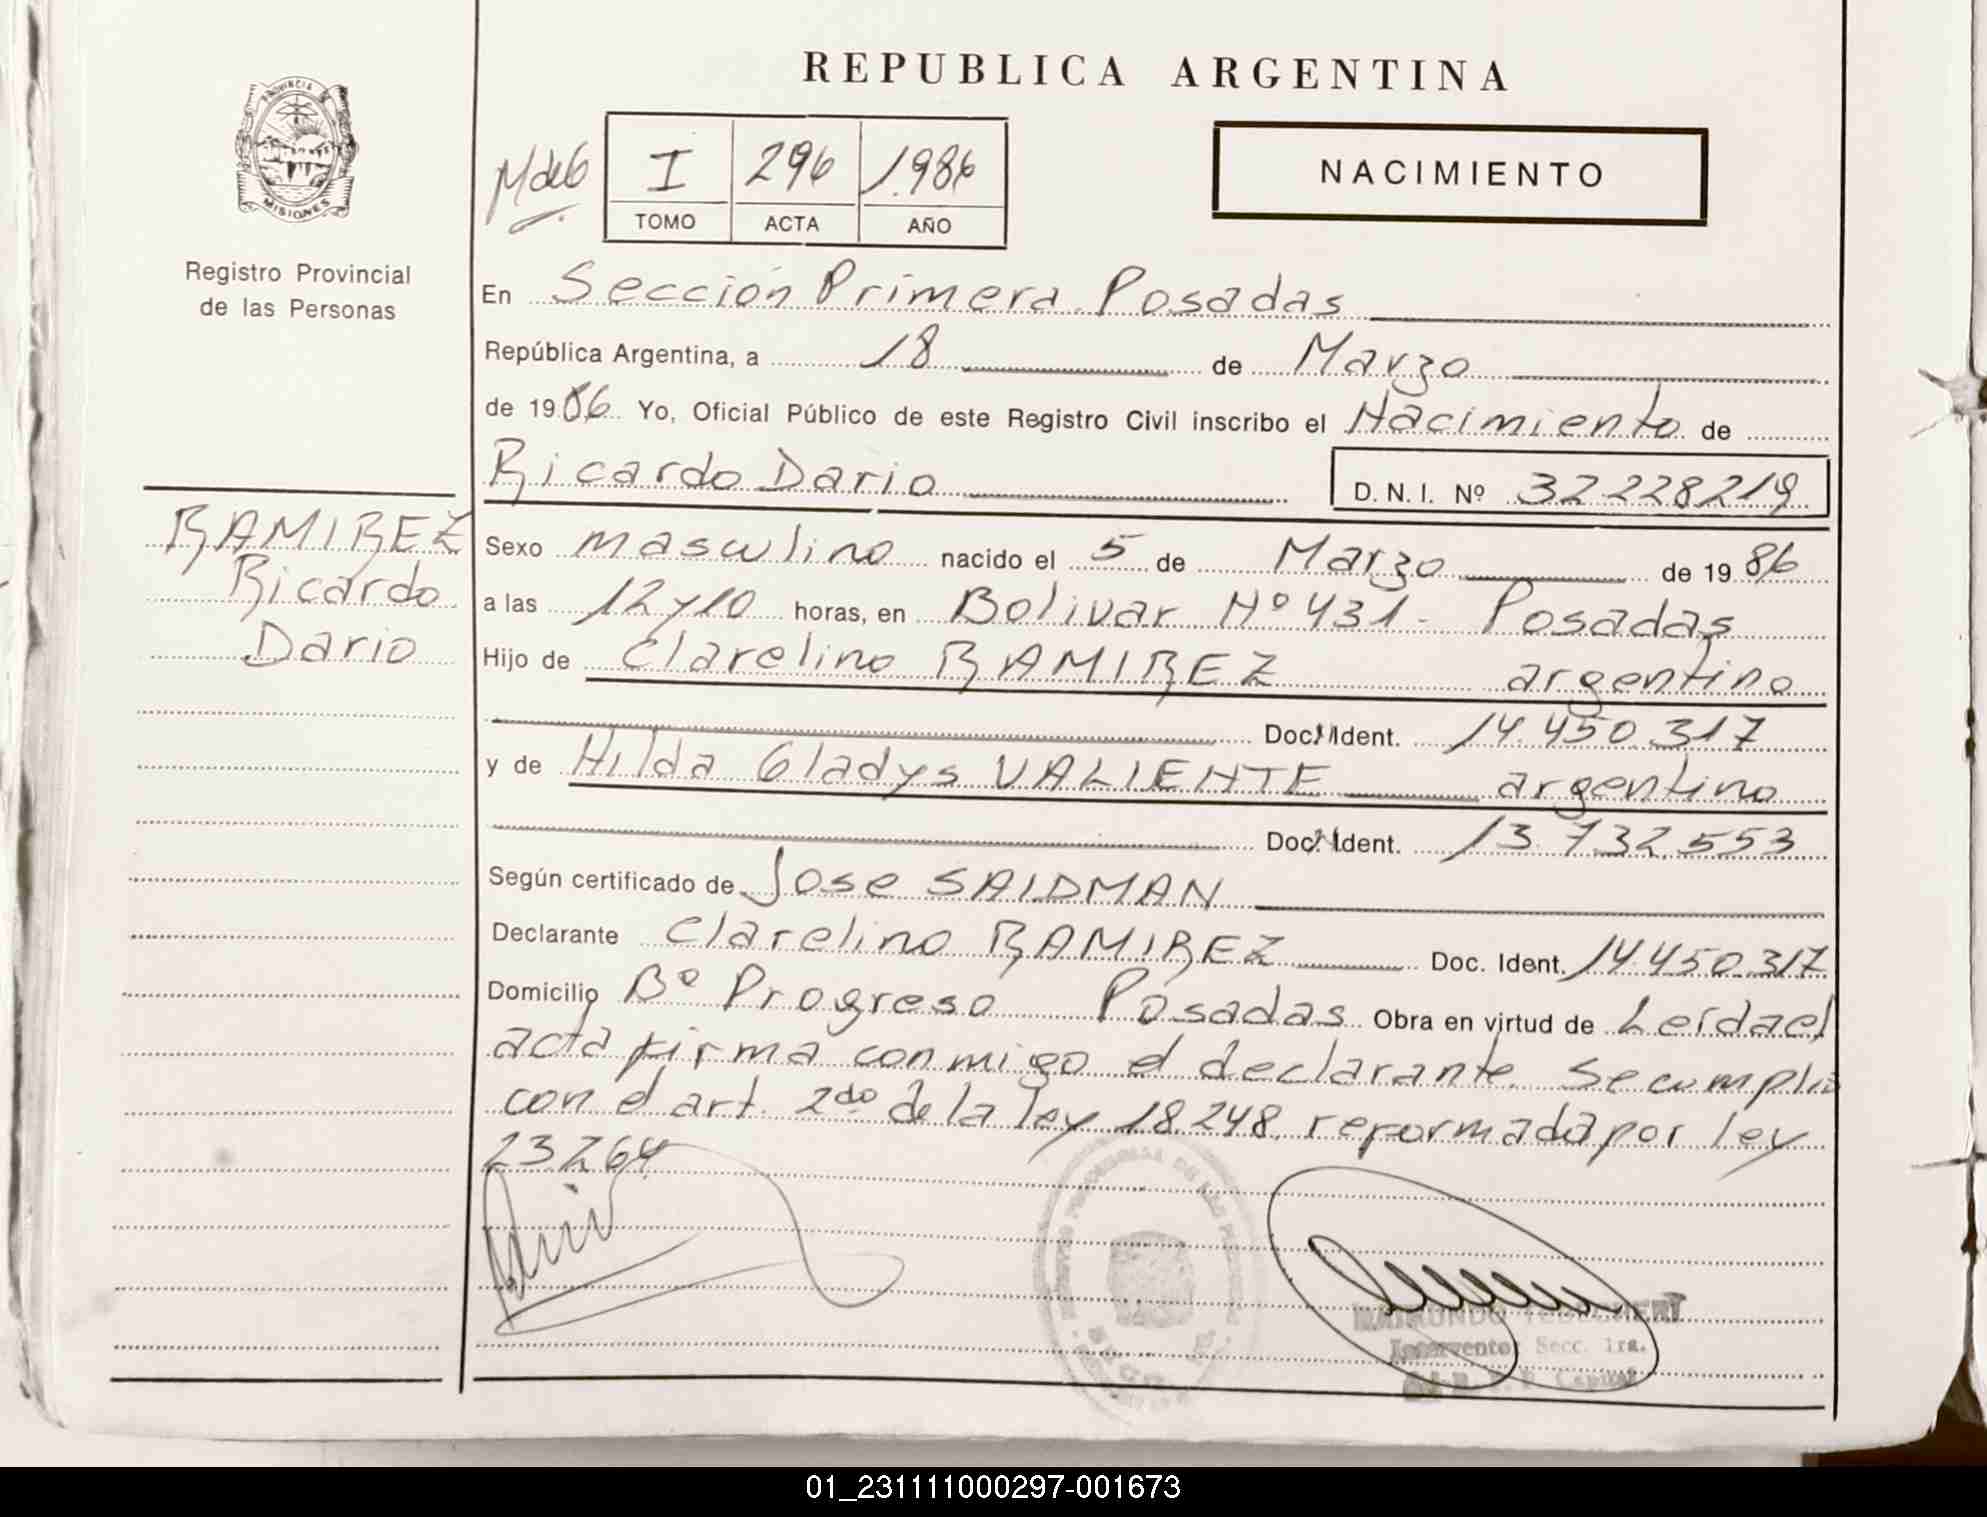 REPUBLICA ARGENTINA
PROVINCIA DE
MISIONES
Registro Provincial
de las Personas
I 296 1986
TOMO ACTA AÑO
NACIMIENTO
En Sección Primera Posadas
República Argentina, a 18 de Marzo
de 1986 Yo, Oficial Público de este Registro Civil inscribo el Nacimiento de
Ricardo Dario D.N.I. Nº 32228219
RAMIREZ
Ricardo
Dario
Sexo masculino nacido el 5 de Marzo de 1986
a las 12 y 10 horas, en Bolivar Nº 431 - Posadas
Hijo de Clarelino RAMIREZ argentino
Doc. Ident. 14.450.317
y de Hilda Gladys VALIENTE argentina
Doc. Ident. 13.732.553
Según certificado de Jose SAIDMAN
Declarante Clarelino RAMIREZ Doc. Ident. 14.450.317
Domicilio Bº Progreso Posadas Obra en virtud de Leída el
acta firma conmigo el declarante. Se cumplio
con el art. 2do de la ley 18.248 reformada por ley
23.264
RAIMUNDO
Interventor Secc. 1ra.
Capital
01_231111000297-001673